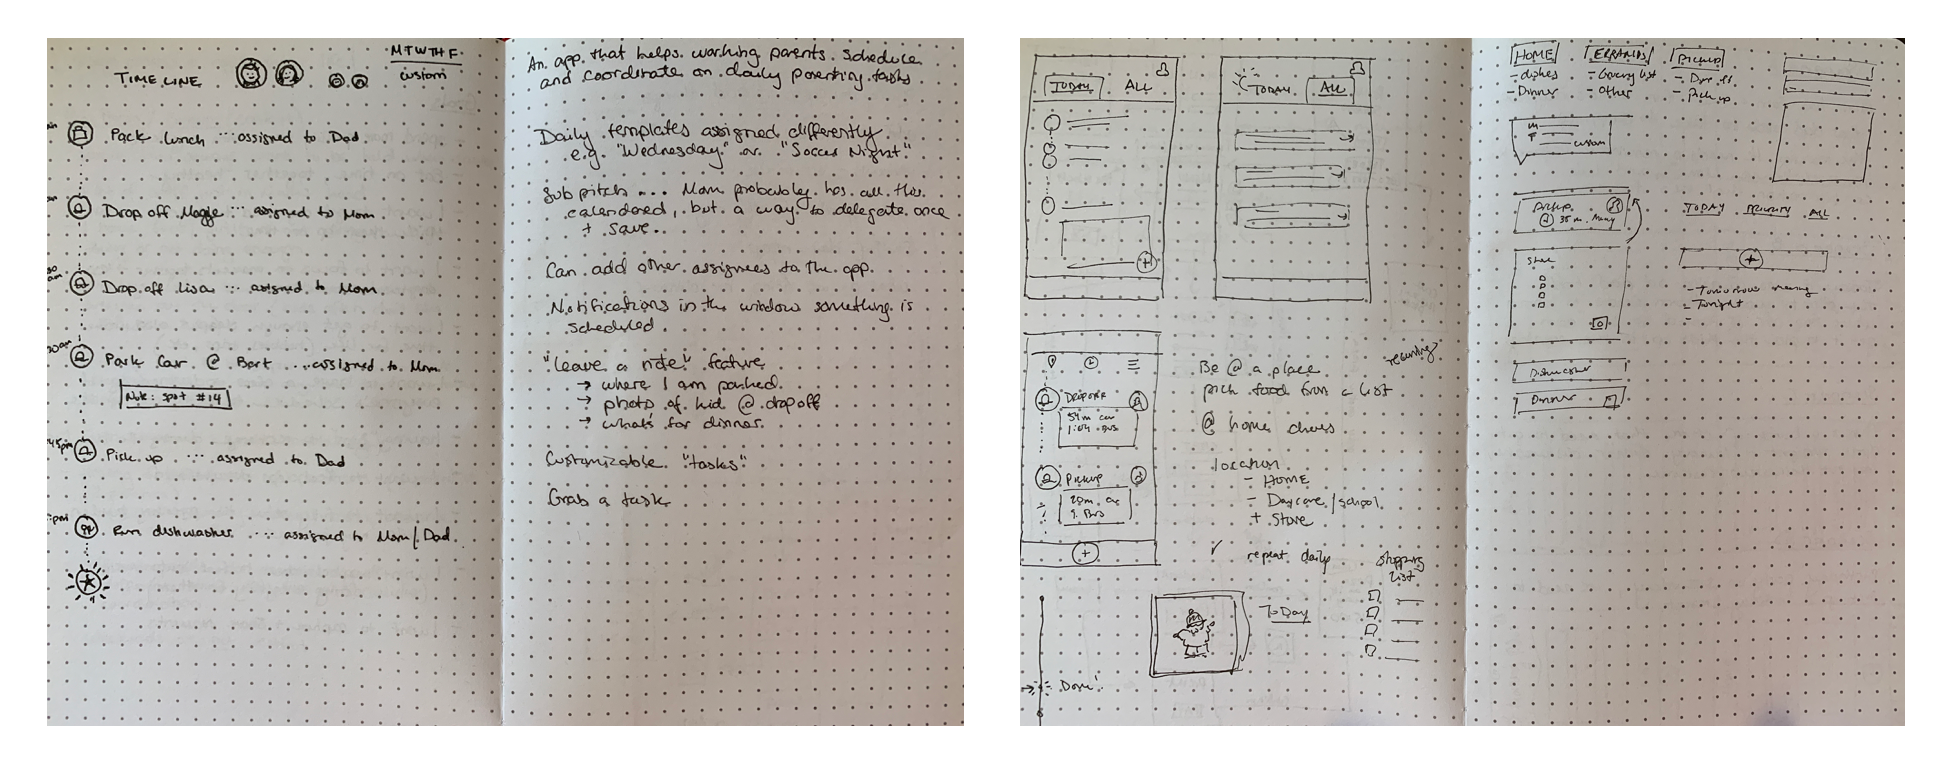 MTWTHF
custom
TIMELINE
Pack lunch ... assigned to Dad
Drop off Maggie ... assigned to Mom
am
Drop off Lisa ... assigned to Mom
am
Park Car @ Bart ... assigned to Mom
Note: spot #14
45pm
Pick up ... assigned to Dad
pm
Run dishwasher .... assigned to Mom/Dad
An app that helps working parents schedule
and coordinate on daily parenting tasks
Daily templates assigned differently
e.g. "Wednesday" or "Soccer Night"
Sub pitch ... Mom probably has all this
calendared, but a way to delegate once
+ save.
Can add other assignees to the app.
Notifications in the window something is
scheduled.
"Leave a note" feature
→ where I am parked
→ photo of kid @ dropoff
→ what's for dinner
Customizable "tasks"
Grab a task
TODAY ALL
+
TODAY ALL
DROPOFF
54m car
1:04 Bus
Pickup
+
Be @ a place
recurring
pick food from a list
@ home chores
location
- HOME
- Daycare/school
+ Store
✓ repeat daily
shopping
list
TODAY
→ Done!
HOME
- dishes
- Dinner
ERRANDS
- Grocery list
- Other
PICKUP
- Drop off
- Pick up
M
F
custom
Pickup
35m
TODAY PRIORITY ALL
Store
+
- Tomorrow morning
- Tonight
-
Dishwasher
Dinner